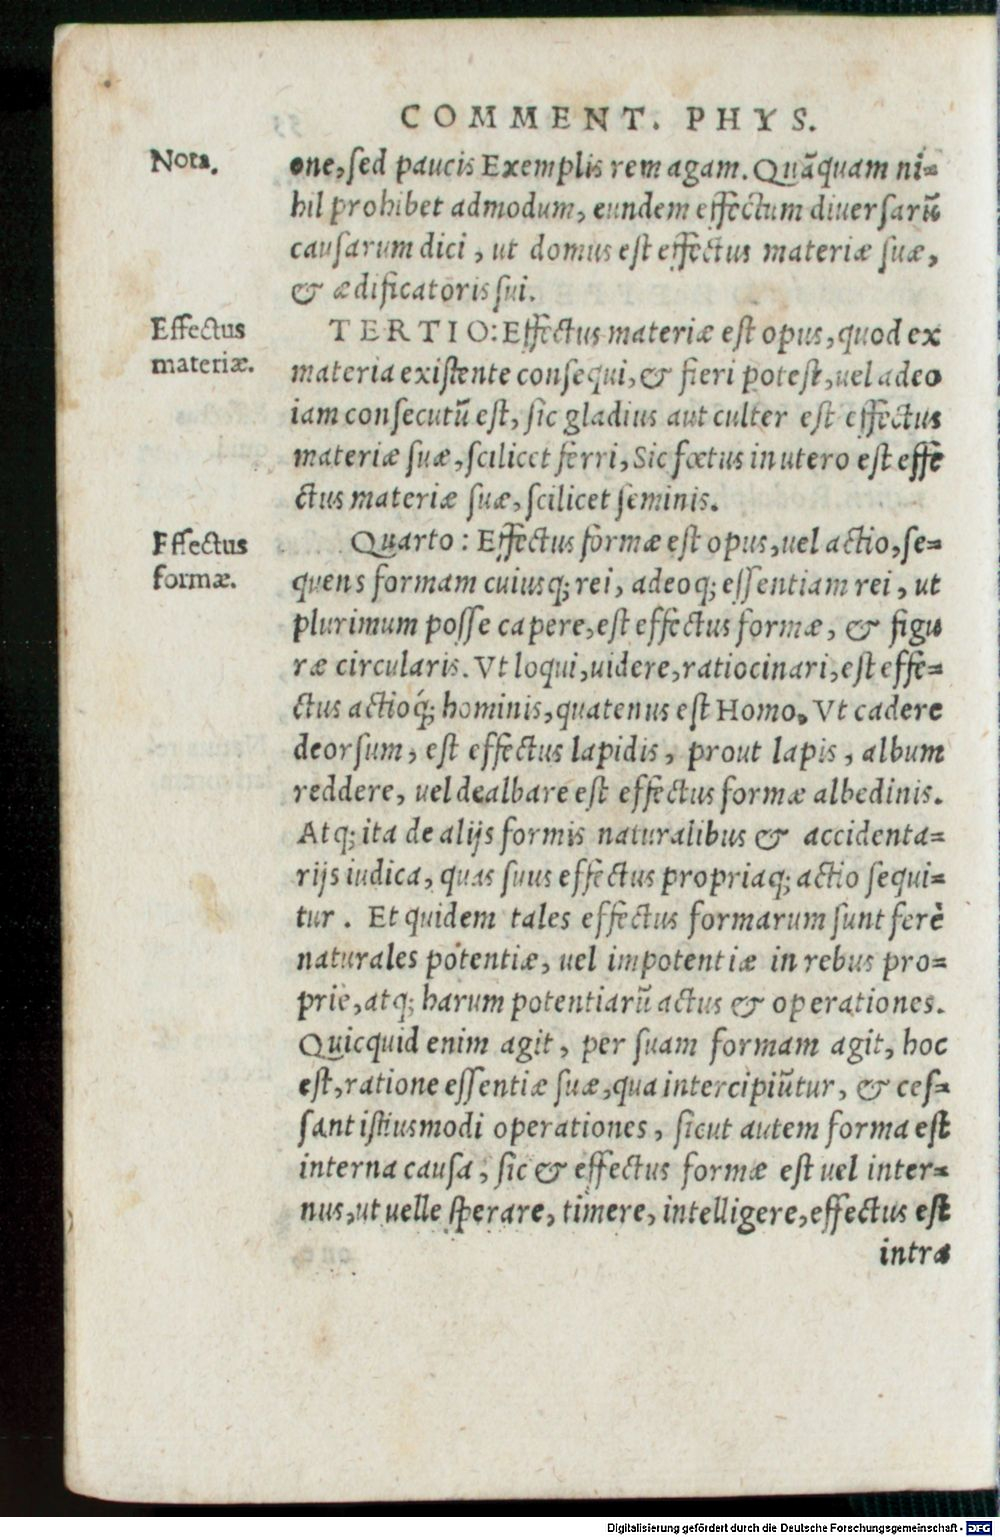 COMMENT. PHYS.
Nota.
one, sed paucis Exemplis rem agam. Quãquam ni-
hil prohibet admodum, eundem effectum diuersarũ
causarum dici, ut domus est effectus materiæ suæ,
& ædificatoris sui.
Effectus
materiæ.
TERTIO: Effectus materiæ est opus, quod ex
materia existente consequi, & fieri potest, uel adeo
iam consecutũ est, sic gladius aut culter est effectus
materiæ suæ, scilicet ferri, Sic fœtus in utero est effe
ctus materiæ suæ, scilicet seminis.
Effectus
formæ.
Quarto: Effectus formæ est opus, uel actio, se-
quens formam cuiusq; rei, adeoq; essentiam rei, ut
plurimum posse capere, est effectus formæ, & figu
ræ circularis. Vt loqui, uidere, ratiocinari, est effe-
ctus actioq́; hominis, quatenus est Homo. Vt cadere
deorsum, est effectus lapidis, prout lapis, album
reddere, uel dealbare est effectus formæ albedinis.
Atq; ita de alijs formis naturalibus & accidenta-
rijs iudica, quas suus effectus propriaq; actio sequi-
tur. Et quidem tales effectus formarum sunt ferè
naturales potentiæ, uel impotentiæ in rebus pro-
priè, atq; harum potentiarũ actus & operationes.
Quicquid enim agit, per suam formam agit, hoc
est, ratione essentiæ suæ, qua intercipiũtur, & ces-
sant istiusmodi operationes, sicut autem forma est
interna causa, sic & effectus formæ est uel inter-
nus, ut uelle sperare, timere, intelligere, effectus est
intra
Digitalisierung gefördert durch die Deutsche Forschungsgemeinschaft - DFG